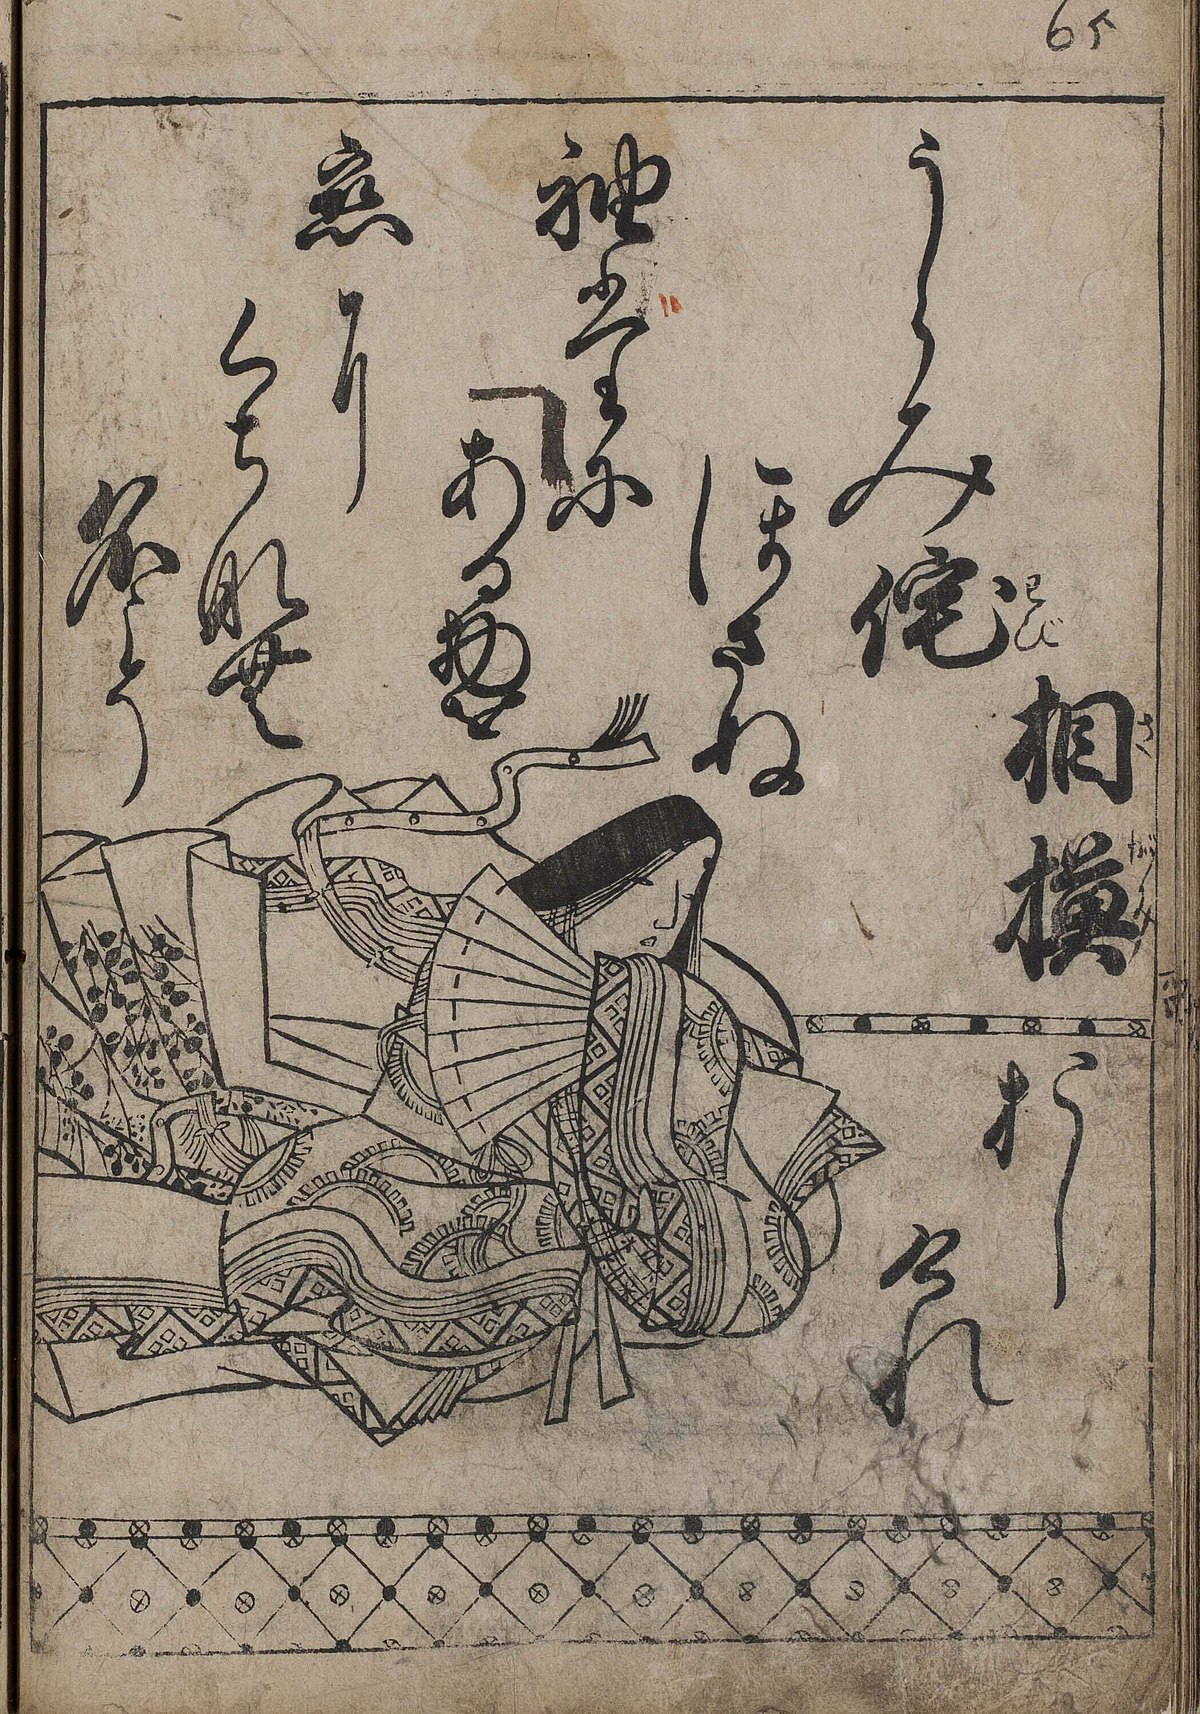 65
相模
さがみ
うらみ侘
わび
ほさぬ
袖だに
ある物を
恋に
くちなむ
名こそ
おし
けれ